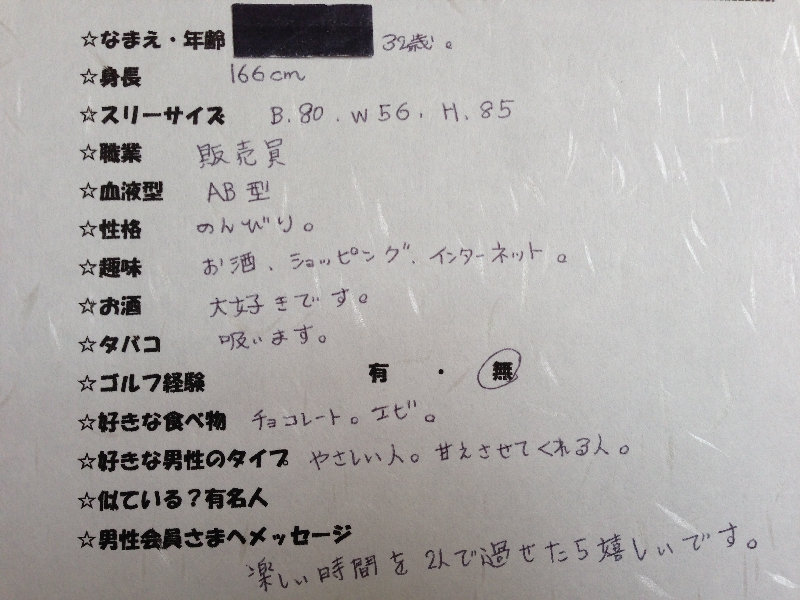 ☆なまえ・年齢 32歳。
☆身長 166cm
☆スリーサイズ B.80.W56.H.85
☆職業 販売員
☆血液型 AB型
☆性格 のんびり。
☆趣味 お酒、ショッピング、インターネット。
☆お酒 大好きです。
☆タバコ 吸います。
☆ゴルフ経験 有・無
☆好きな食べ物 チョコレート。エビ。
☆好きな男性のタイプ やさしい人。甘えさせてくれる人。
☆似ている?有名人
☆男性会員さまへメッセージ
楽しい時間を2人で過せたら嬉しいです。